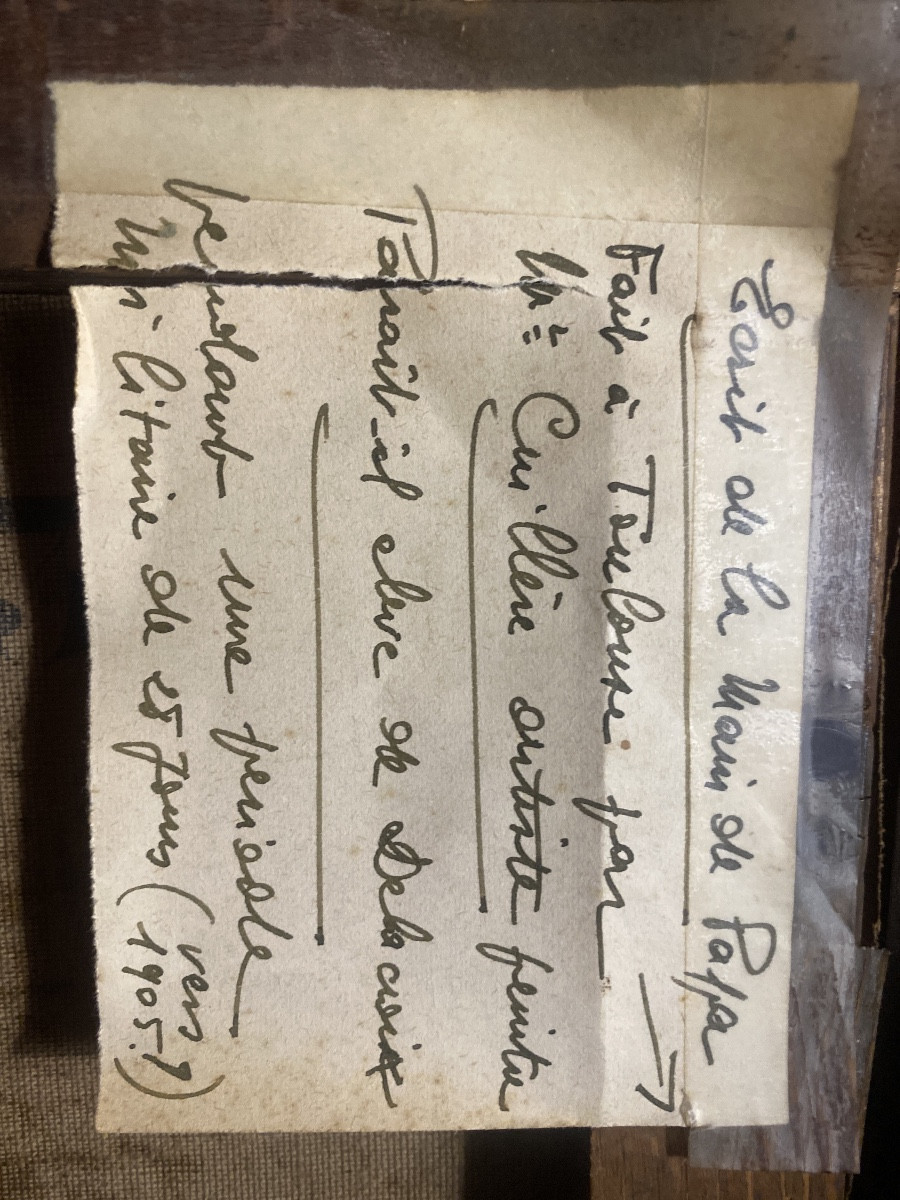 Ecrit de la Main de Papa
Fait à Toulouse par →
Mr Cuillère artiste peintre
Parait-il eleve de Delacroix
pendant une periode
Militaire de 25 Jours (vers 1905?)